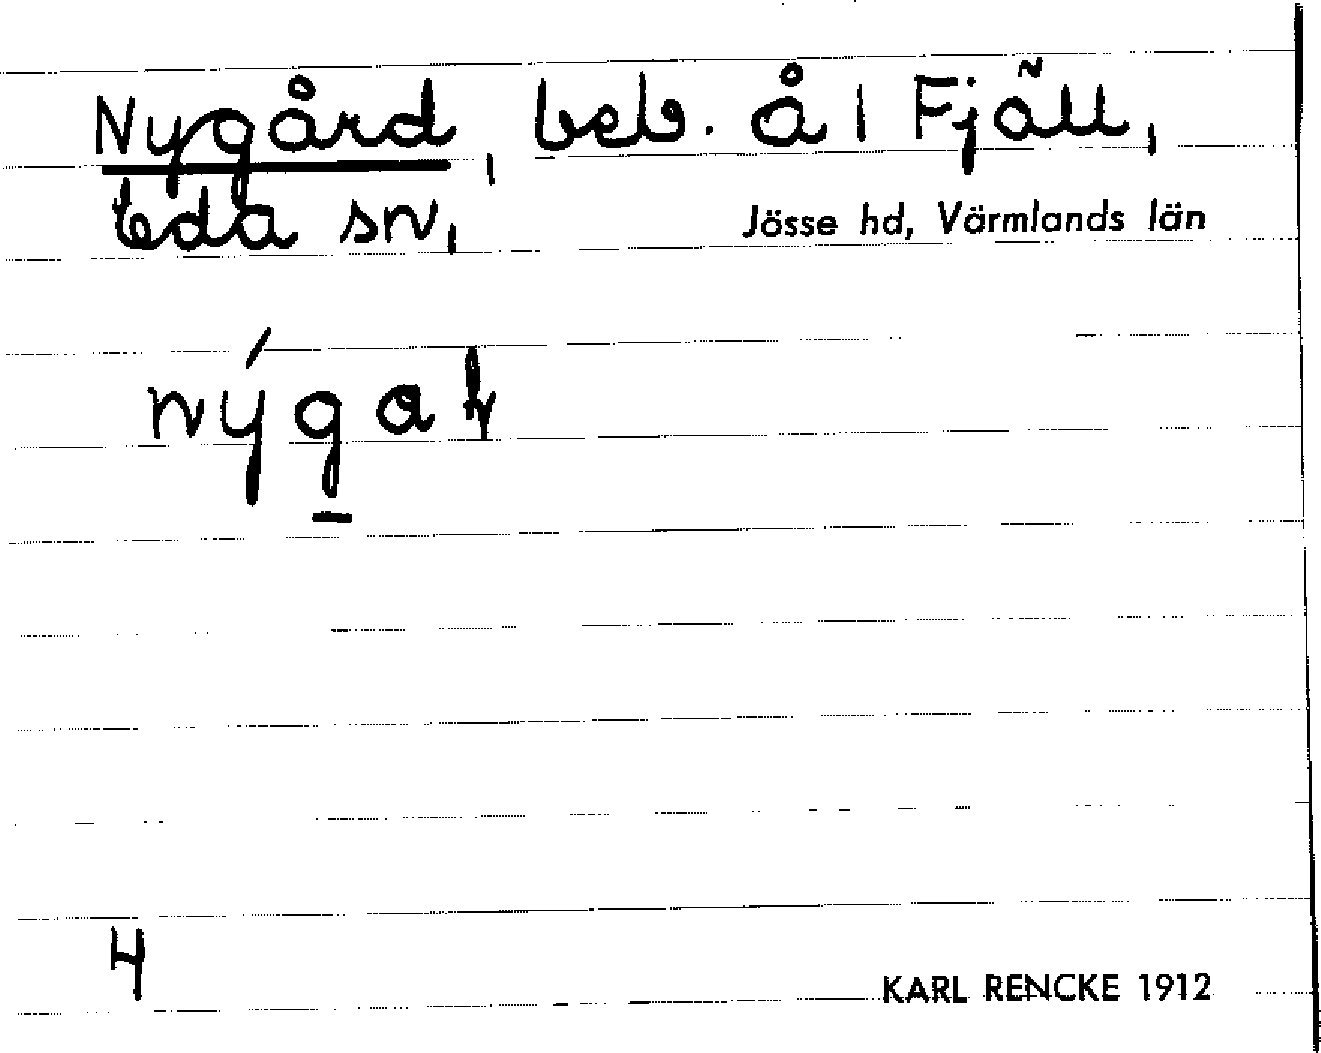 Nygård, beb. å 1 Fjäll,
Eda sn, Jösse hd, Värmlands län
4
KARL RENCKE 1912